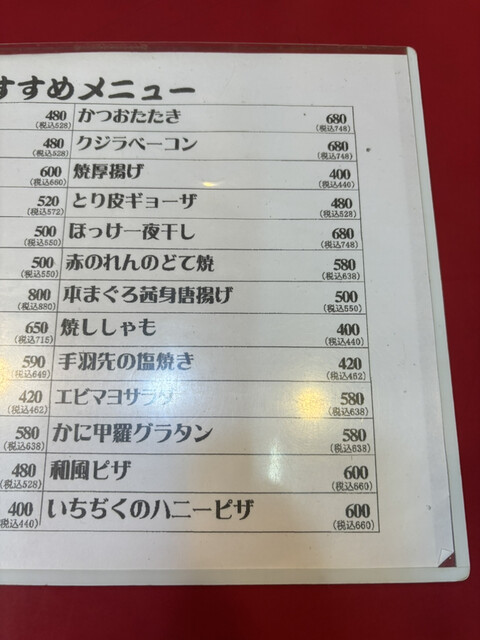 すすめメニュー
480 かつおたたき 680
(税込528) (税込748)
480 クジラベーコン 680
(税込528) (税込748)
600 焼厚揚げ 400
(税込660) (税込440)
520 とり皮ギョーザ 480
(税込572) (税込528)
500 ほっけ一夜干し 680
(税込550) (税込748)
500 赤のれんのどて焼 580
(税込550) (税込638)
800 本まぐろ茜身唐揚げ 500
(税込880) (税込550)
650 焼ししゃも 400
(税込715) (税込440)
590 手羽先の塩焼き 420
(税込649) (税込462)
420 エビマヨサラダ 580
(税込462) (税込638)
580 かに甲羅グラタン 580
(税込638) (税込638)
480 和風ピザ 600
(税込528) (税込660)
400 いちぢくのハニーピザ 600
(税込440) (税込660)